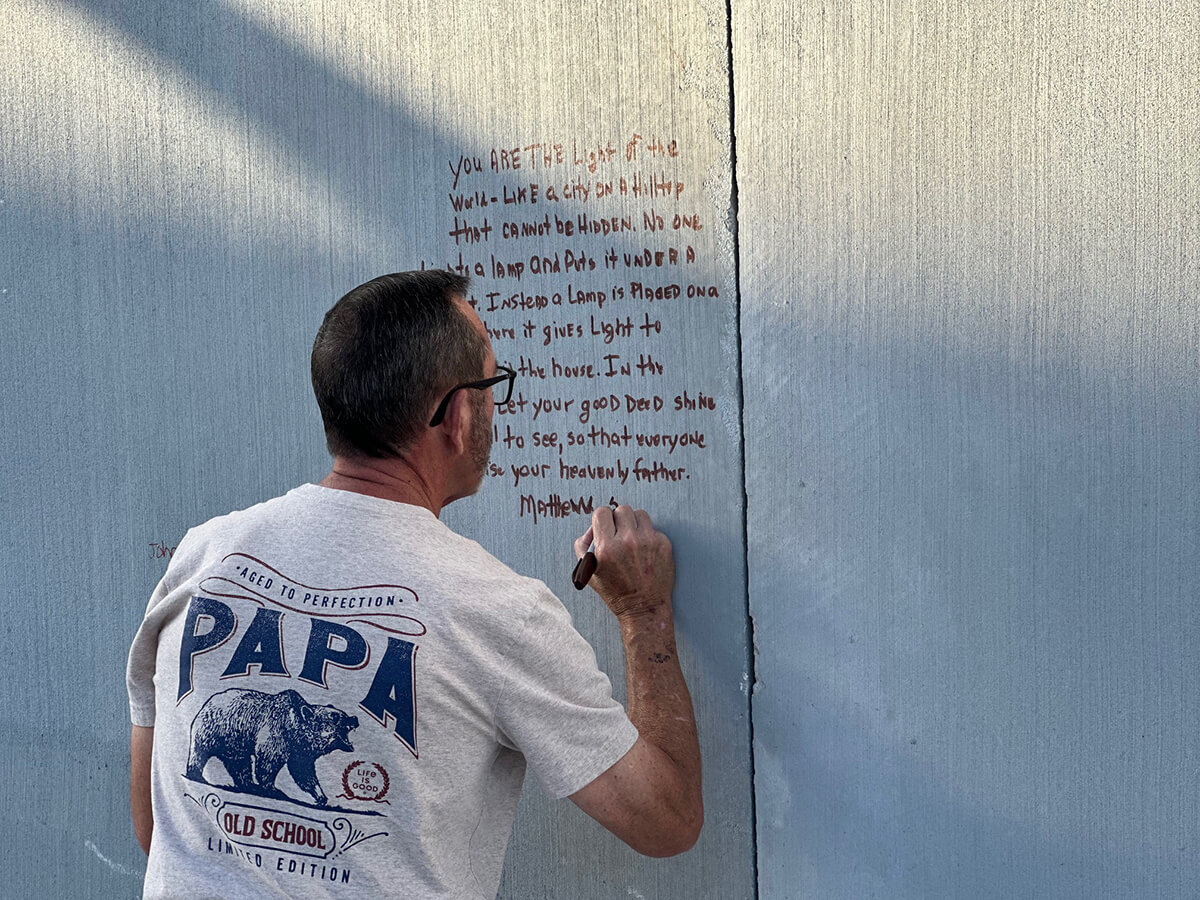 YOU ARE THE Light of the
World - LIKE a city ON A Hilltop
that CANNot be HIDDEN. No ONE
a lamp and Puts it UNDER A
INSteaD a LAMP is PlaceD ON a
it gives Light to
the house. In the
Let your gooD DeeD shine
to see, so that everyone
your heavenly father.
Matthew 5
John
·AGED TO PERFECTION·
PAPA
LIFE
IS
GOOD
OLD SCHOOL
LIMITED EDITION